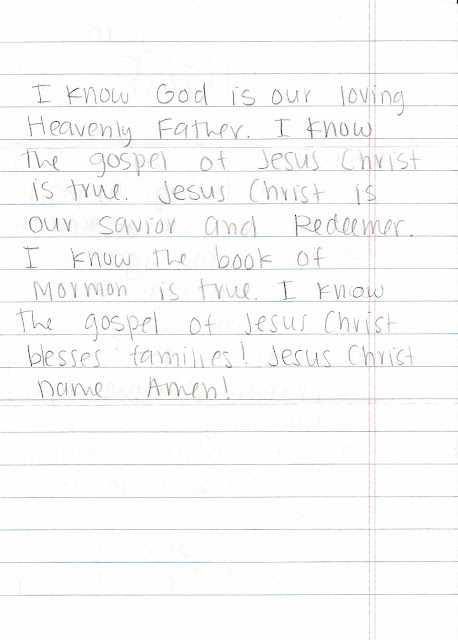 I know God is our loving
Heavenly Father. I know
the gospel of Jesus Christ
is true. Jesus Christ is
our savior and Redeemer.
I know the book of
Mormon is true. I know
the gospel of Jesus Christ
blesses families! Jesus Christ
name Amen!